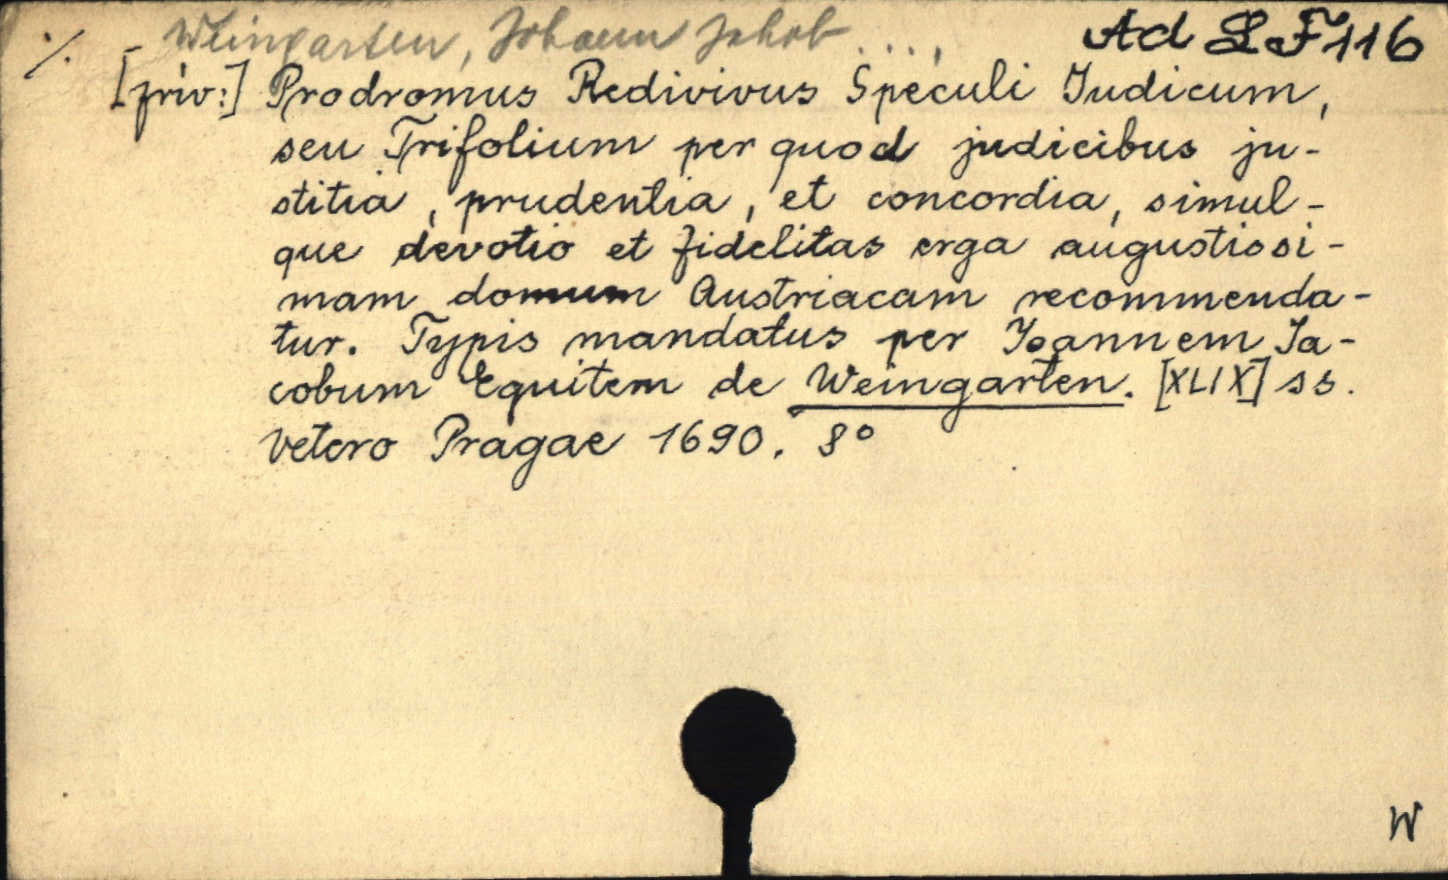 Weingarten, Johann Jakob
Ad L F 116
./.
[priv:] Prodromus Redivivus Speculi Iudicum,
seu Trifolium per quod judicibus ju-
stitia, prudentia, et concordia, simul-
que devotio et fidelitas erga augustissi-
mam domum Austriacam recommenda-
tur. Typis mandatus per Ioannem Ia-
cobum Equitem de Weingarten. [XLIX] ss.
Vetero Pragae 1690. 8°
W